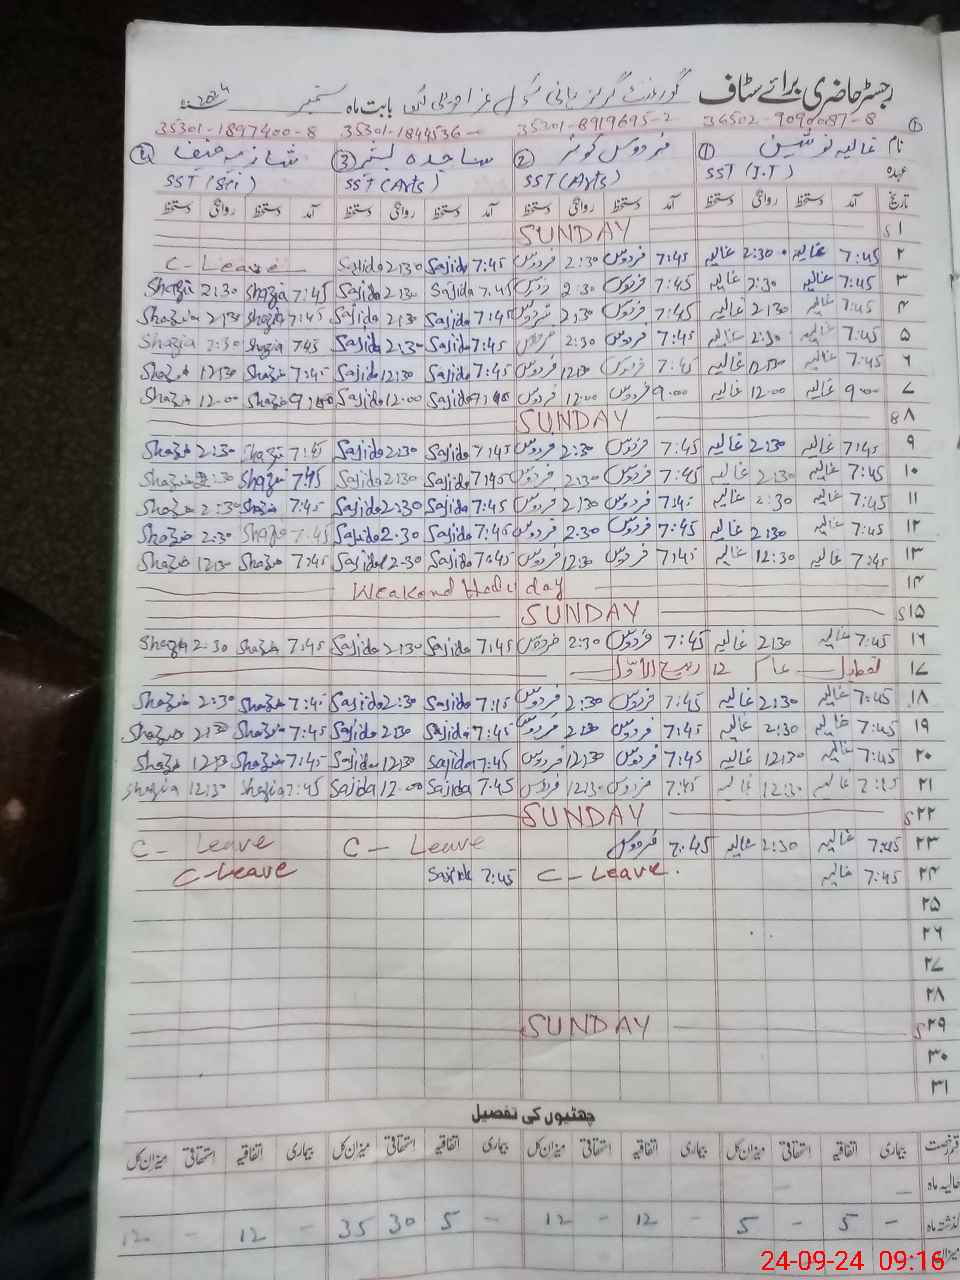 رجسٹر حاضری برائے سٹاف گورنمنٹ گرلز ہائی سکول بابت ماہ ستمبر 2024
36502-9090087-8 35301-8919695-2 35301-1844536- 35301-1897400-8
نام غالیہ نوشین ① فردوس کوثر ② ساجدہ ③ شازیہ حنیف ④
عہدہ SST (I.T) SST (Arts) SST (Arts) SST (Sci)
تاریخ آمد دستخط روانگی دستخط آمد دستخط روانگی دستخط آمد دستخط روانگی دستخط آمد دستخط روانگی دستخط
۱ S SUNDAY
۲ 7:45 غالیہ 2:30 غالیہ 7:45 فردوس 2:30 فردوس 7:45 Sajida 2:30 Sajida C-Leave
۳ 7:45 غالیہ 2:30 غالیہ 7:45 فردوس 2:30 7:45 Sajida 2:30 Sajida 7:45 Shazia 2:30 Shazia
۴ 7:45 غالیہ 2:30 غالیہ 7:45 فردوس 2:30 فردوس 7:45 Sajida 2:30 Sajida 7:45 Shazia 2:30 Shazia
۵ 7:45 غالیہ 2:30 غالیہ 7:45 فردوس 2:30 7:45 Sajida 2:30 Sajida 7:45 Shazia 2:30 Shazia
۶ 7:45 غالیہ 12:30 غالیہ 7:45 فردوس 12:30 فردوس 7:45 Sajida 12:30 Sajida 7:45 Shazia 12:30 Shazia
۷ 9:00 غالیہ 12:00 غالیہ 9:00 فردوس 12:00 فردوس Sajida 12:00 Sajida Shazia 12:00 Shazia
۸ S SUNDAY
۹ 7:45 غالیہ 2:30 غالیہ 7:45 فردوس 2:30 فردوس 7:45 Sajida 2:30 Sajida 7:45 Shazia 2:30 Shazia
۱۰ 7:45 غالیہ 2:30 غالیہ 7:45 فردوس 2:30 فردوس 7:45 Sajida 2:30 Sajida 7:45 Shazia 2:30 Shazia
۱۱ 7:45 غالیہ 2:30 غالیہ 7:45 فردوس 2:30 فردوس 7:45 Sajida 2:30 Sajida 7:45 Shazia 2:30 Shazia
۱۲ 7:45 غالیہ 2:30 غالیہ 7:45 فردوس 2:30 فردوس 7:45 Sajida 2:30 Sajida 7:45 Shazia 2:30 Shazia
۱۳ 7:45 غالیہ 12:30 غالیہ 7:45 فردوس 12:30 فردوس 7:45 Sajida 2:30 Sajida 7:45 Shazia 12:30 Shazia
۱۴ Weakand Holiday
۱۵ S SUNDAY
۱۶ 7:45 غالیہ 2:30 غالیہ 7:45 فردوس 2:30 فردوس 7:45 Sajida 2:30 Sajida 7:45 Shazia 2:30 Shazia
۱۷ تعطیل عام 12 ربیع الاوّل
۱۸ 7:45 غالیہ 2:30 غالیہ 7:45 فردوس 2:30 فردوس 7:45 Sajida 2:30 Sajida 7:45 Shazia 2:30 Shazia
۱۹ 7:45 غالیہ 2:30 غالیہ 7:45 فردوس 2:30 فردوس 7:45 Sajida 2:30 Sajida 7:45 Shazia 2:30 Shazia
۲۰ 7:45 غالیہ 12:30 غالیہ 7:45 فردوس 12:30 فردوس 7:45 Sajida 12:30 Sajida 7:45 Shazia 12:30 Shazia
۲۱ 7:45 غالیہ 12:30 غالیہ 7:45 فردوس 12:30 فردوس 7:45 Sajida 12:00 Sajida 7:45 Shazia 12:30 Shazia
۲۲ S SUNDAY
۲۳ 7:45 غالیہ 2:30 غالیہ 7:45 فردوس C-Leave C-Leave
۲۴ 7:45 غالیہ C-Leave. 7:45 Sajida C-Leave
۲۵
۲۶
۲۷
۲۸
۲۹ S SUNDAY
۳۰
۳۱
چھٹیوں کی تفصیل
قسم رخصت بیماری اتفاقیہ استحقاقی میزان کل بیماری اتفاقیہ استحقاقی میزان کل بیماری اتفاقیہ استحقاقی میزان کل بیماری اتفاقیہ استحقاقی میزان کل
حالیہ ماہ — —
گذشتہ ماہ - 5 - 5 - 12 - 12 - 5 30 35 - 12 - 12
میزان
24-09-24 09:16